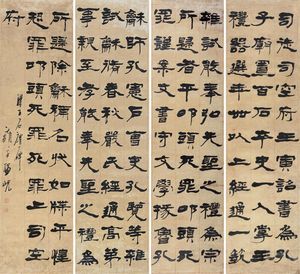 司徒司空府壬寅詔書為孔
子廟置百石卒史一人掌主
禮器選年卌以上經通一藝
雜試能奉弘先聖之禮為宗
所歸者平叩頭叩頭死罪死
罪謹案文書守文學掾魯孔
龢師孔憲戶曹史孔覽等雜
試龢脩春秋嚴氏經通高第
事親至孝能奉先聖之禮為宗
所歸除龢補名狀如牒平惶
恐叩頭死罪死罪上司空
府
楊峴